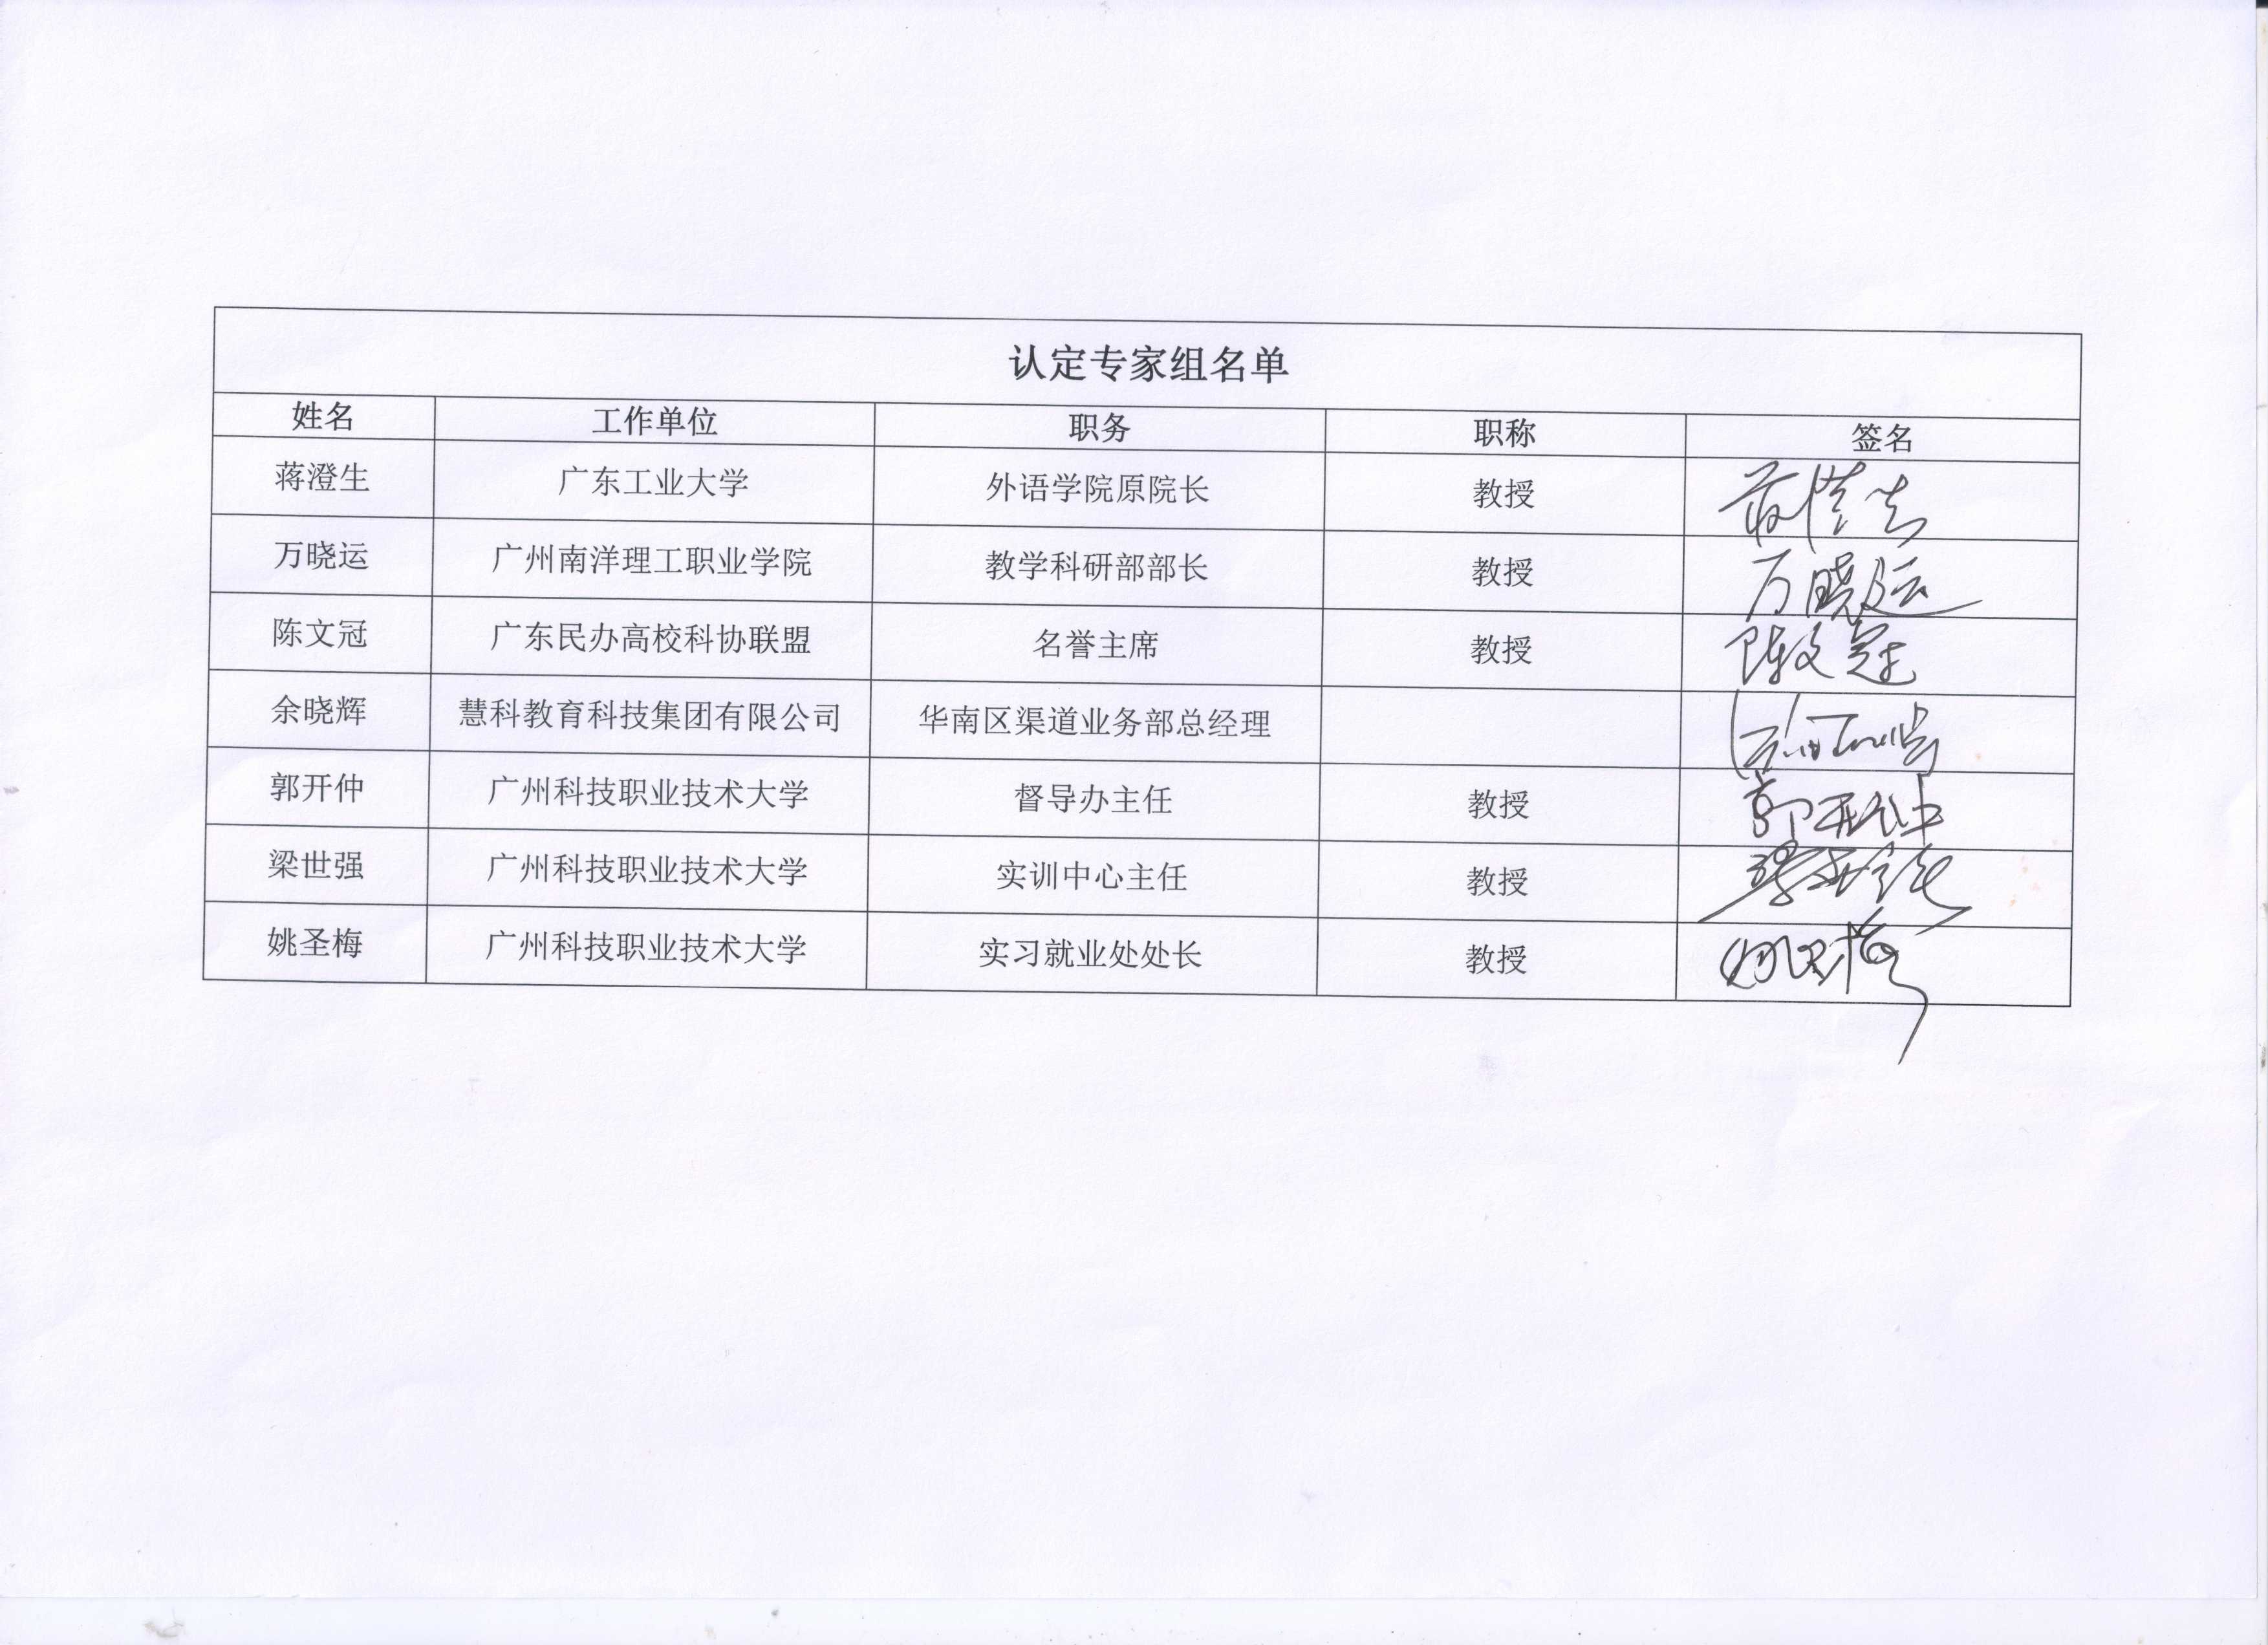 认定专家组名单
姓名 工作单位 职务 职称 签名
蒋澄生 广东工业大学 外语学院原院长 教授 蒋澄生
万晓运 广州南洋理工职业学院 教学科研部部长 教授 万晓运
陈文冠 广东民办高校科协联盟 名誉主席 教授 陈文冠
余晓辉 慧科教育科技集团有限公司 华南区渠道业务部总经理
郭开仲 广州科技职业技术大学 督导办主任 教授 郭开仲
梁世强 广州科技职业技术大学 实训中心主任 教授
姚圣梅 广州科技职业技术大学 实习就业处处长 教授 姚圣梅